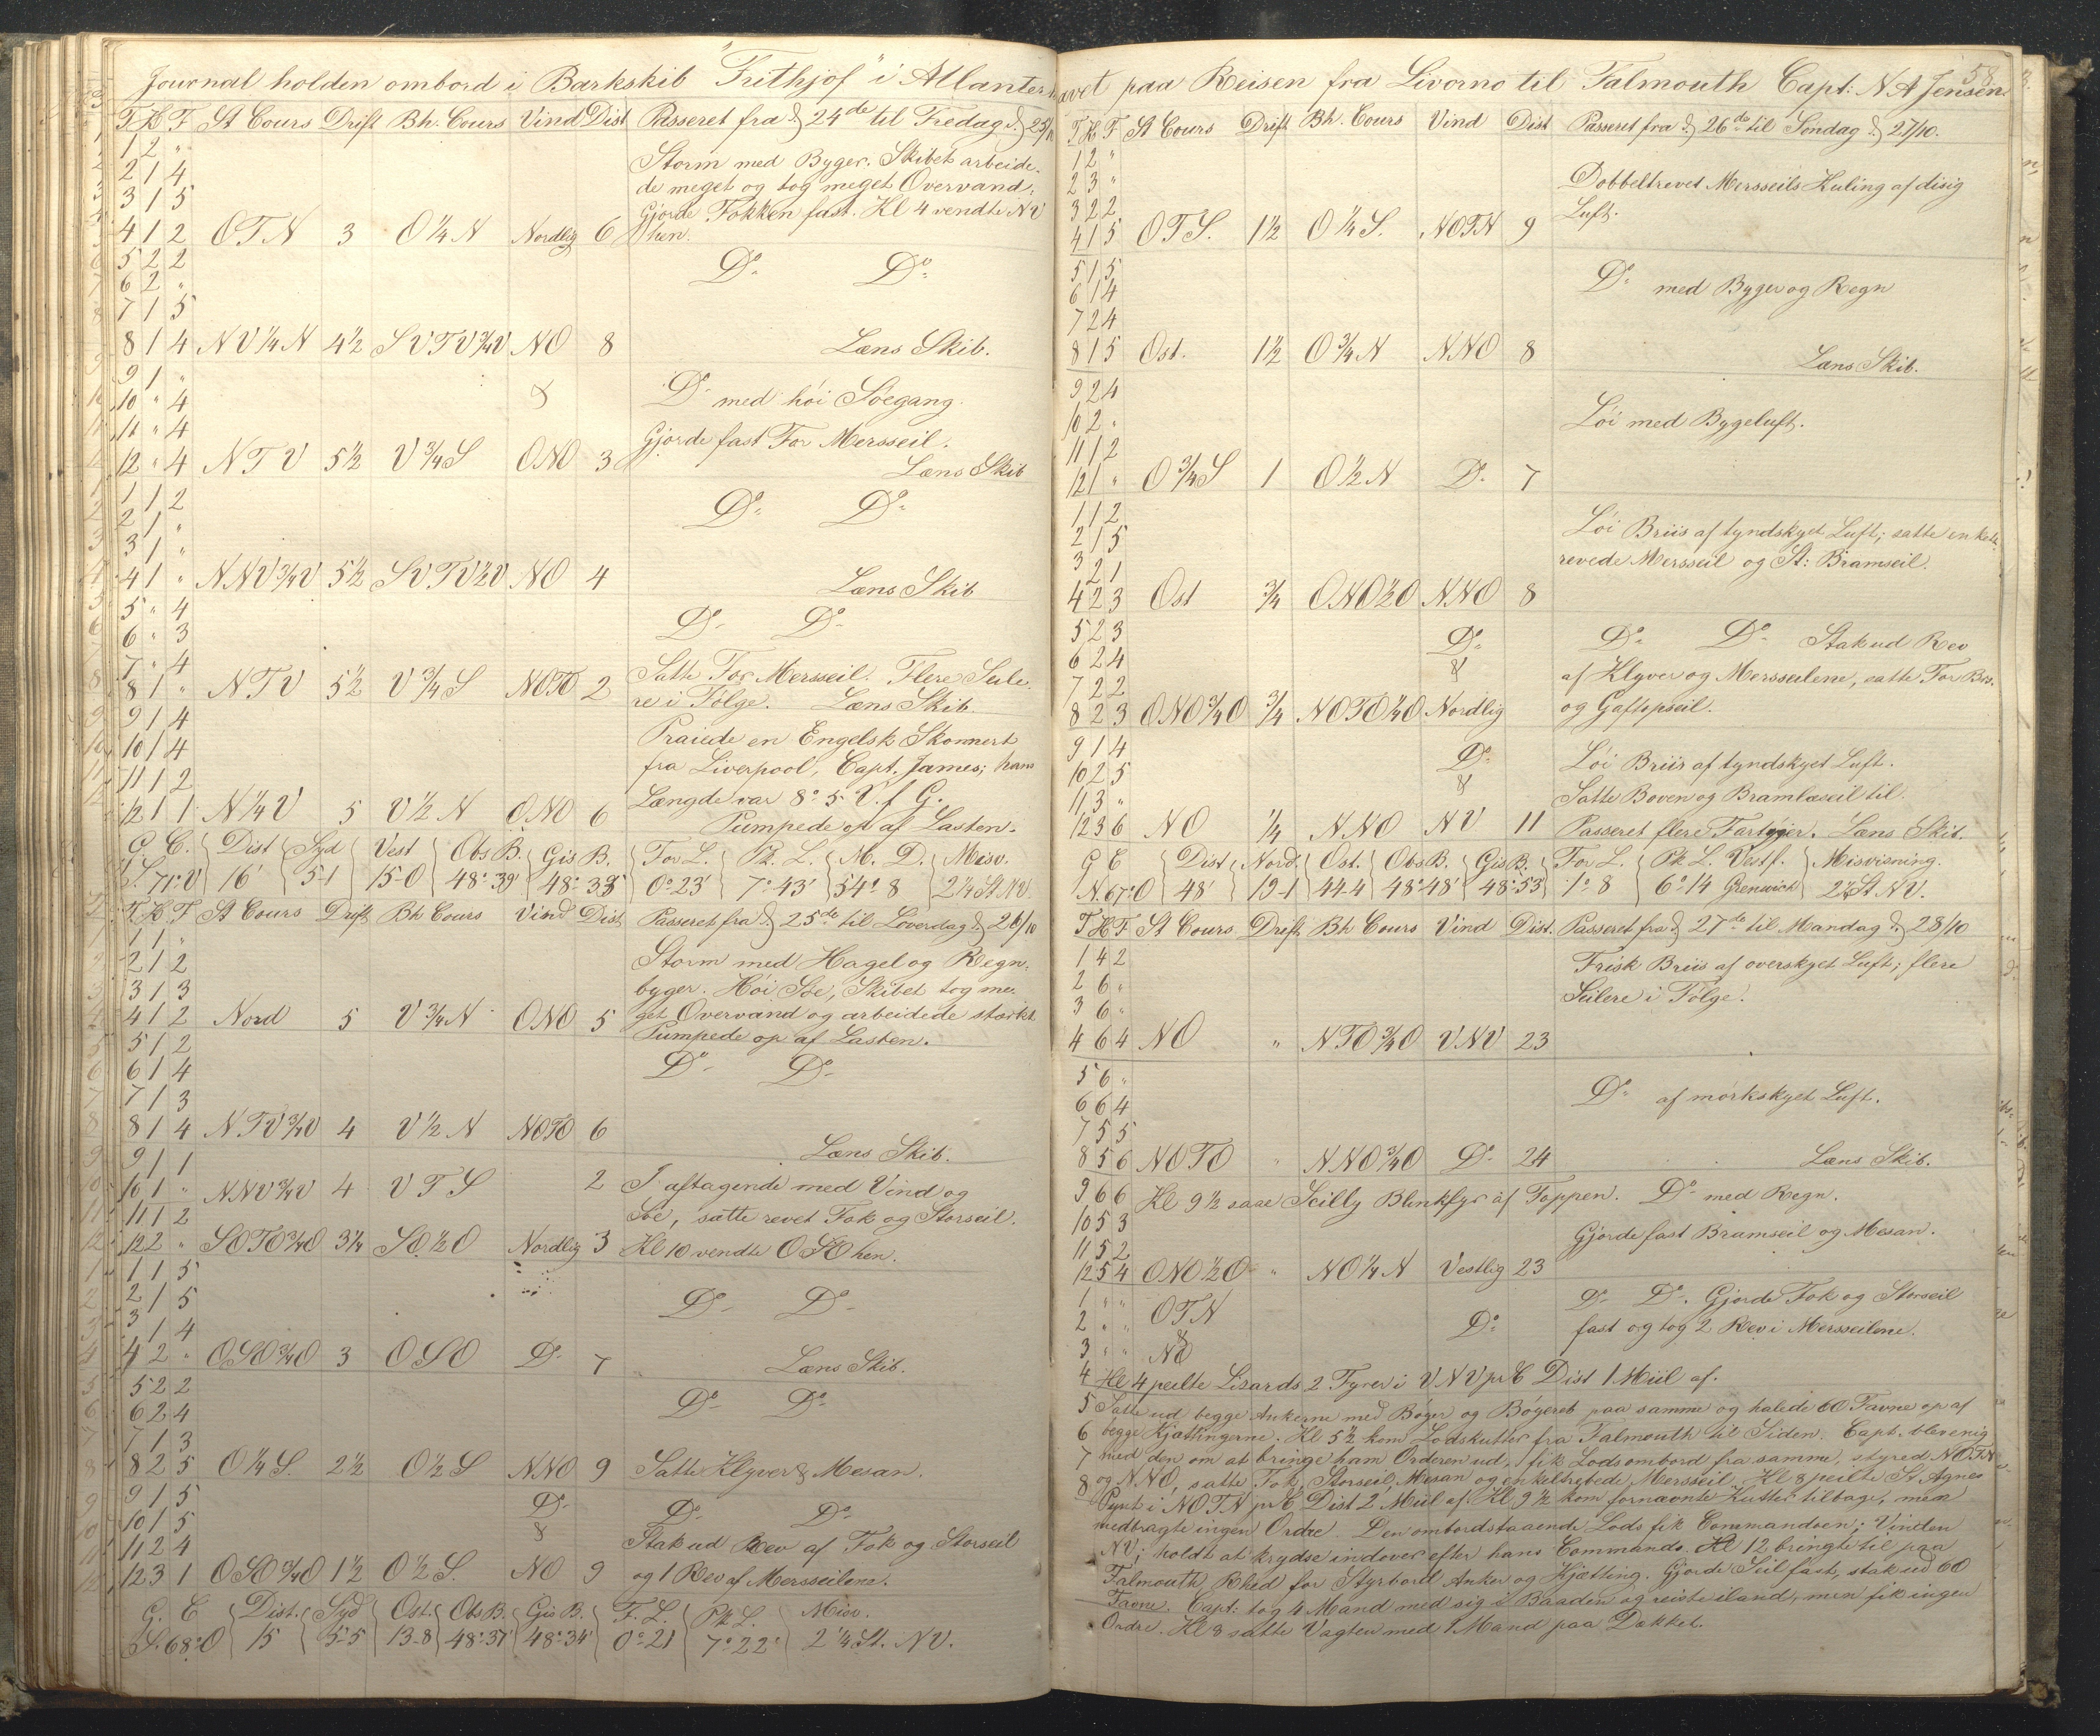 58
Journal holden ombord i Barkskib "Frithjof" i Atlanterhavet paa Reisen fra Livorno til Falmouth Capt: N A Jensen
T K F St Cours Drift Bh. Cours Vind Dist Passeret fra d 24de til Fredag d 25/10
1 2 "
2 1 4 Storm med Byger. Skibet arbeide-
3 1 5 de meget og tog meget Overvand;
Gjorde Fokken fast. Kl 4 vendte NV
4 1 2 OTN 3 O ¼ N Nordlig 6 hen.
5 2 2 Do Do
6 2 "
7 1 5
8 1 4 NV ¼ N 4½ SVTV ¾ V NO 8 Læns Skib.
9 1 "
10 " 4 & Do med høi Söegang.
11 " 4 Gjorde fast For Mersseil.
12 " 4 NTV 5½ V ¾ S ONO 3 Læns Skib
1 1 2 Do Do
2 1 "
3 1 "
4 1 " NNV ¾ V 5½ SVTV ½ V NO 4 Læns Skib
5 " 4 Do Do
6 " 3
7 " 4 Satte For Mersseil. Flere Seile-
8 1 " NTV 5½ V ¾ S NOTO 2 re i Følge. Læns Skib.
9 1 4 Praiede en Engelsk Skonnert
10 1 4 fra Liverpool, Capt. James; hans
11 1 2 Længde var 8° 5' V. f G.
12 1 1 N ¼ V 5 V ½ N ONO 6 Pumpede op af Lasten.
G. C. Dist Syd Vest Obs B. Gis B. For L. Pk. L. M. D. Misv.
S. 71° V 16' 5-1 15-0 48°-39' 48°-38' 0°-23' 7°-43' 54° 8 2¼ St. NV.
T K F St Cours Drift Bh Cours Vind Dist Passeret fra d 25de til Löverdag d 26/10
1 1 " Storm med Hagel og Regn-
2 1 2 byger. Høi Söe, Skibet tog me-
3 1 3 get Overvand og arbeidede stærkt
4 1 2 Nord 5 V ¾ N ONO 5 Pumpede op af Lasten.
5 1 2 Do Do
6 1 4
7 1 3
8 1 4 NTV ¾ V 4 V ½ N NOTO 6 Læns Skib.
9 1 1
10 1 " NNV ¾ V 4 VTS 2 I aftagende med Vind og
11 1 2 Söe, satte revet Fok og Storseil.
12 2 " SOTO ¾ O 3¼ SO ½ O Nordlig 3 Kl 10 vendte OSO hen.
1 1 5
2 1 5 Do Do
3 1 4
4 2 " OSO ¾ O 3 OSO Do 7 Læns Skib.
5 2 2 Do Do
6 2 4
7 1 3
8 2 5 O ¼ S. 2½ O ½ S NNO 9 Satte Klyver & Mesan.
9 1 5 Do Do Do
10 1 5 &
11 2 4 Stak ud Rev af Fok og Storseil
12 3 1 OSO ¾ O 1½ O ½ S. NO 9 og 1 Rev af Mersseilene.
G. C Dist. Syd Ost. Obs B. Gis B. F. L. Pk L. Misv.
S. 68° O 15 5-5 13-8 48°-37' 48°-34' 0°-21 7°-22' 2¼ St. NV.
T. K. F St Cours Drift Bh. Cours Vind Dist Passeret fra d 26de til Söndag d 27/10.
1 2 "
2 3 " Dobbeltrevet Mersseils Kuling af disig
3 2 2 Luft.
4 1 5 OTS. 1½ O ¼ S. NOTN 9
5 1 5 Do med Byger og Regn
6 1 4
7 2 4
8 1 5 Ost. 1½ O ¾ N NNO 8 Læns Skib.
9 2 4
10 2 " Löi med Bygeluft.
11 1 2
12 1 " O ¾ S 1 O ½ N Do 7
1 1 2 Löi Briis af tyndskyet Luft; satte enkelt-
2 1 5 revede Mersseil og St: Bramseil.
3 2 1
4 2 3 Ost ¾ ONO ½ O NNO 8
5 2 3 Do Do Do Stak ud Rev
6 2 4 & af Klyver og Mersseilene, satte For Br.
7 2 2 og Gaftopseil.
8 2 3 ONO ¾ O ¾ NOTO ¼ O Nordlig
9 1 4 Do Löi Briis af tyndskyet Luft.
10 2 5 &
11 3 " Satte Boven og Bramlæseil til.
12 3 6 NO ¼ NNO NV 11 Passeret flere Fartøjer. Læns Skib.
G C Dist Nord. Ost. Obs B. Gis B. For L. Pk. L. Vest f. Misvisning.
N. 67° O 48' 19-1 44-4 48°-48' 48°-53' 1° 8 6° 14 Grenwich 2¼ St NV.
T K F St Cours Drift Bh Cours Vind Dist. Passeret fra d 27de til Mandag d 28/10
1 4 2 Frisk Briis af overskyet Luft; flere
2 6 " Seilere i Følge.
3 6 "
4 6 4 NO " NTO ¾ O VNV 23
5 6 "
6 6 4 Do af mörkskyet Luft.
7 5 5
8 5 6 NOTO " NNO ¾ O Do 24 Læns Skib.
9 6 6 Kl 9½ saae Scilly Blinkfyr af Toppen. Do med Regn.
10 5 3 Gjorde fast Bramseil og Mesan.
11 5 2
12 5 4 ONO ½ O " NO ¼ N Vestlig 23
1 " " OTN Do Do. Gjorde Fok og Storseil
2 " " & Do fast og tog 2 Rev i Mersseilene.
3 " " NO
4 Kl 4 peilte Lizards 2 Fyrer i VNV pr C Dist 1 Miil af.
5 Satte ud begge Ankerne med Bøyer og Bøyereb paa samme og halede 60 Favne op af
6 begge Kjættingerne. Kl 5½ kom Lodskutter fra Falmouth til Siden. Capt. blev enig
7 med den om at bringe ham Orderen ud, fik Lods ombord fra samme, styred NOTN
8 og NNO, satte Fok, Storseil, Mesan og enkeltrebede Mersseil. Kl 8 peilte St Agnes
Pynt i NOTN pr C Dist 2 Miil af. Kl 9½ kom fornævnte Kutter tilbage, men
medbragte ingen Ordre. Den ombordstaaende Lods fik Commandoen; Vinden
NV; holdt at krydse indover efter hans Commando. Kl 12 bringte til paa
Falmouth Rhed for Styrbord Anker og Kjætting. Gjorde Seil fast, stak ud 60
Favne. Capt: tog 4 Mand med sig i Baaden og reiste iland, men fik ingen
Ordre. Kl 8 satte Vagten med 1 Mand paa Dækket.